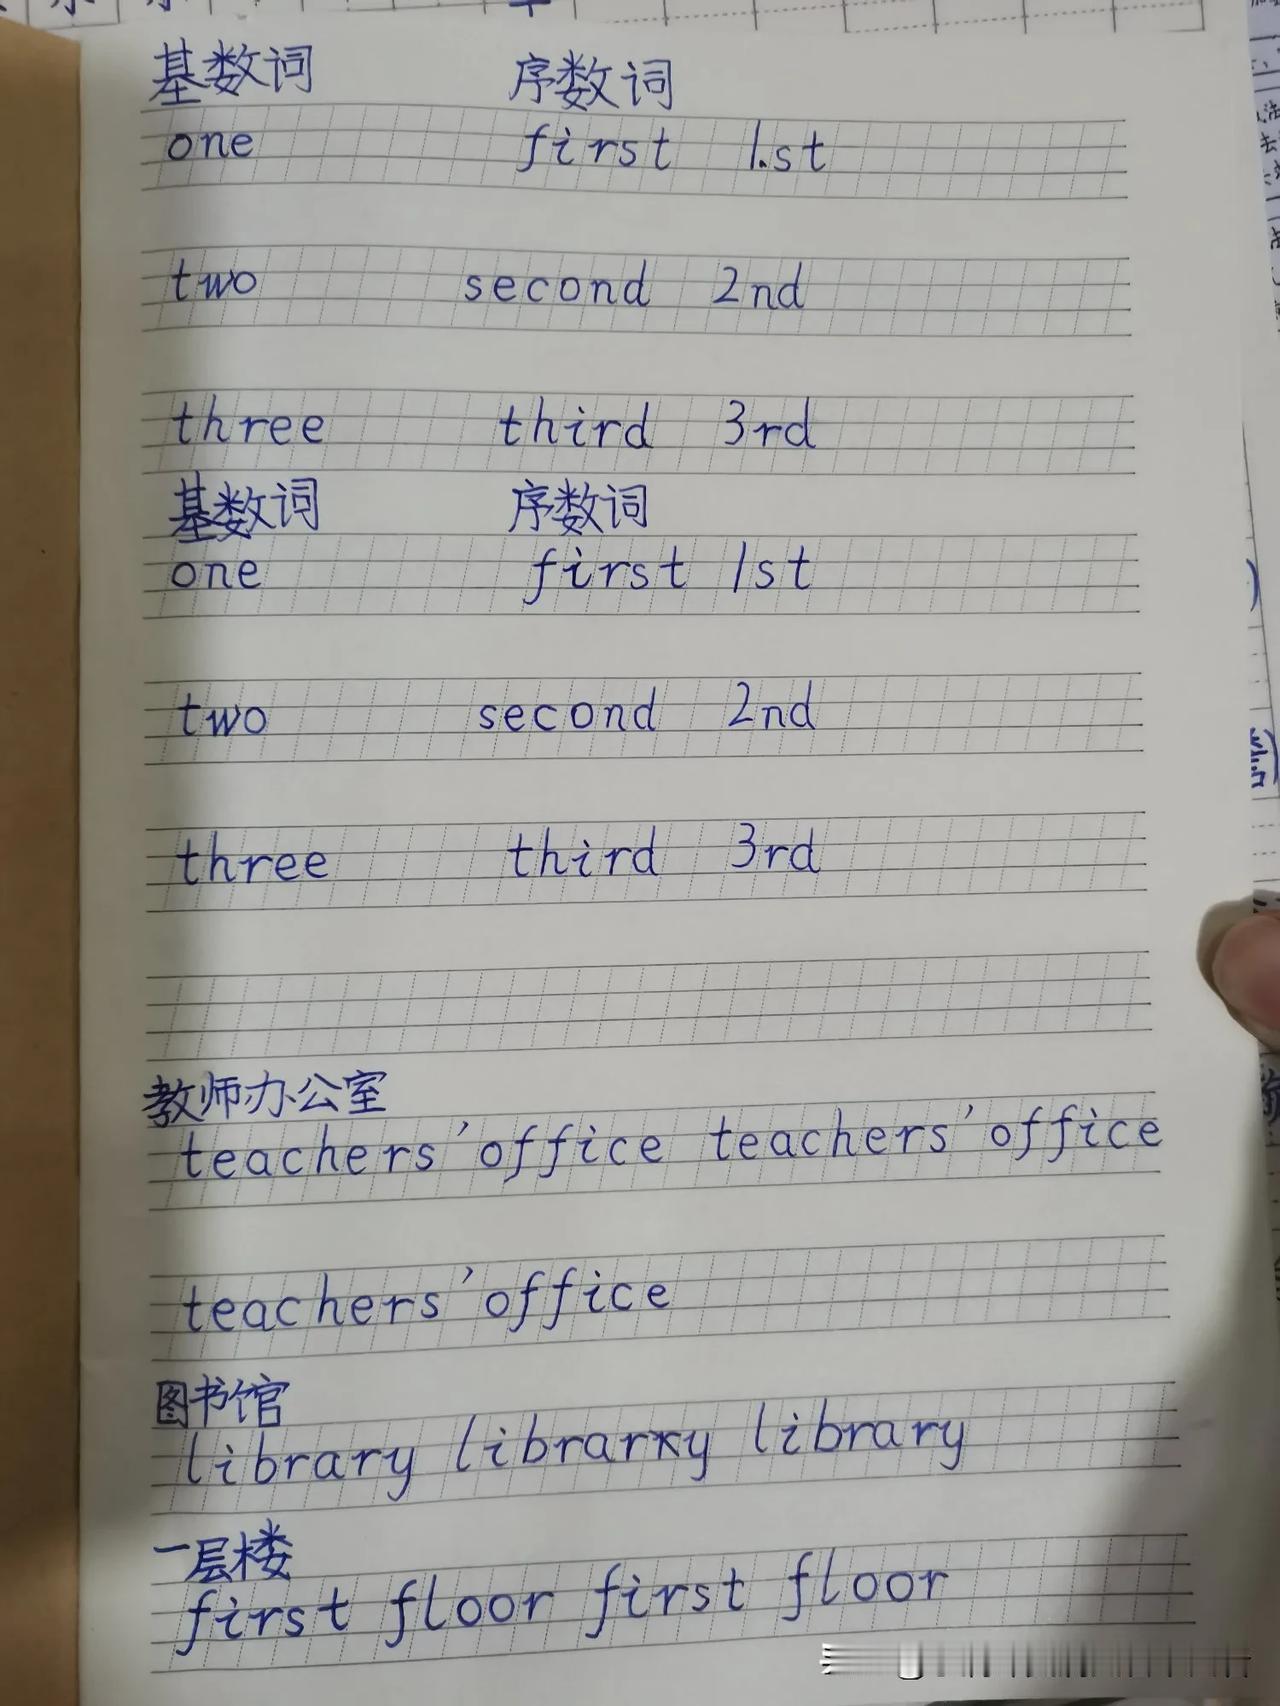 基数词 序数词
one first 1.st
two second 2nd
three third 3rd
基数词 序数词
one first 1st
two second 2nd
three third 3rd
教师办公室
teachers' office teachers' office
teachers' office
图书馆
library librarxy library
一层楼
first floor first floor